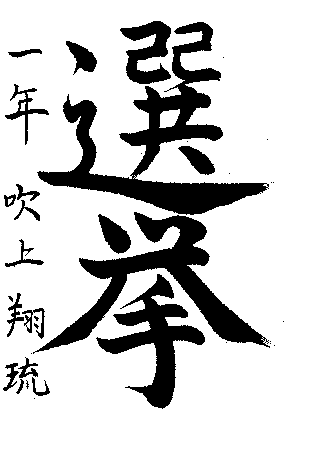 選挙
一年 吹上翔琉